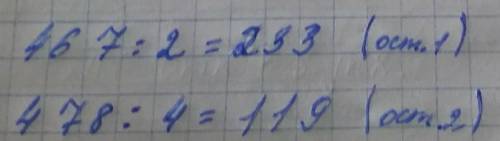 467 : 2 = 233 (ост. 1)
478 : 4 = 119 (ост. 2)